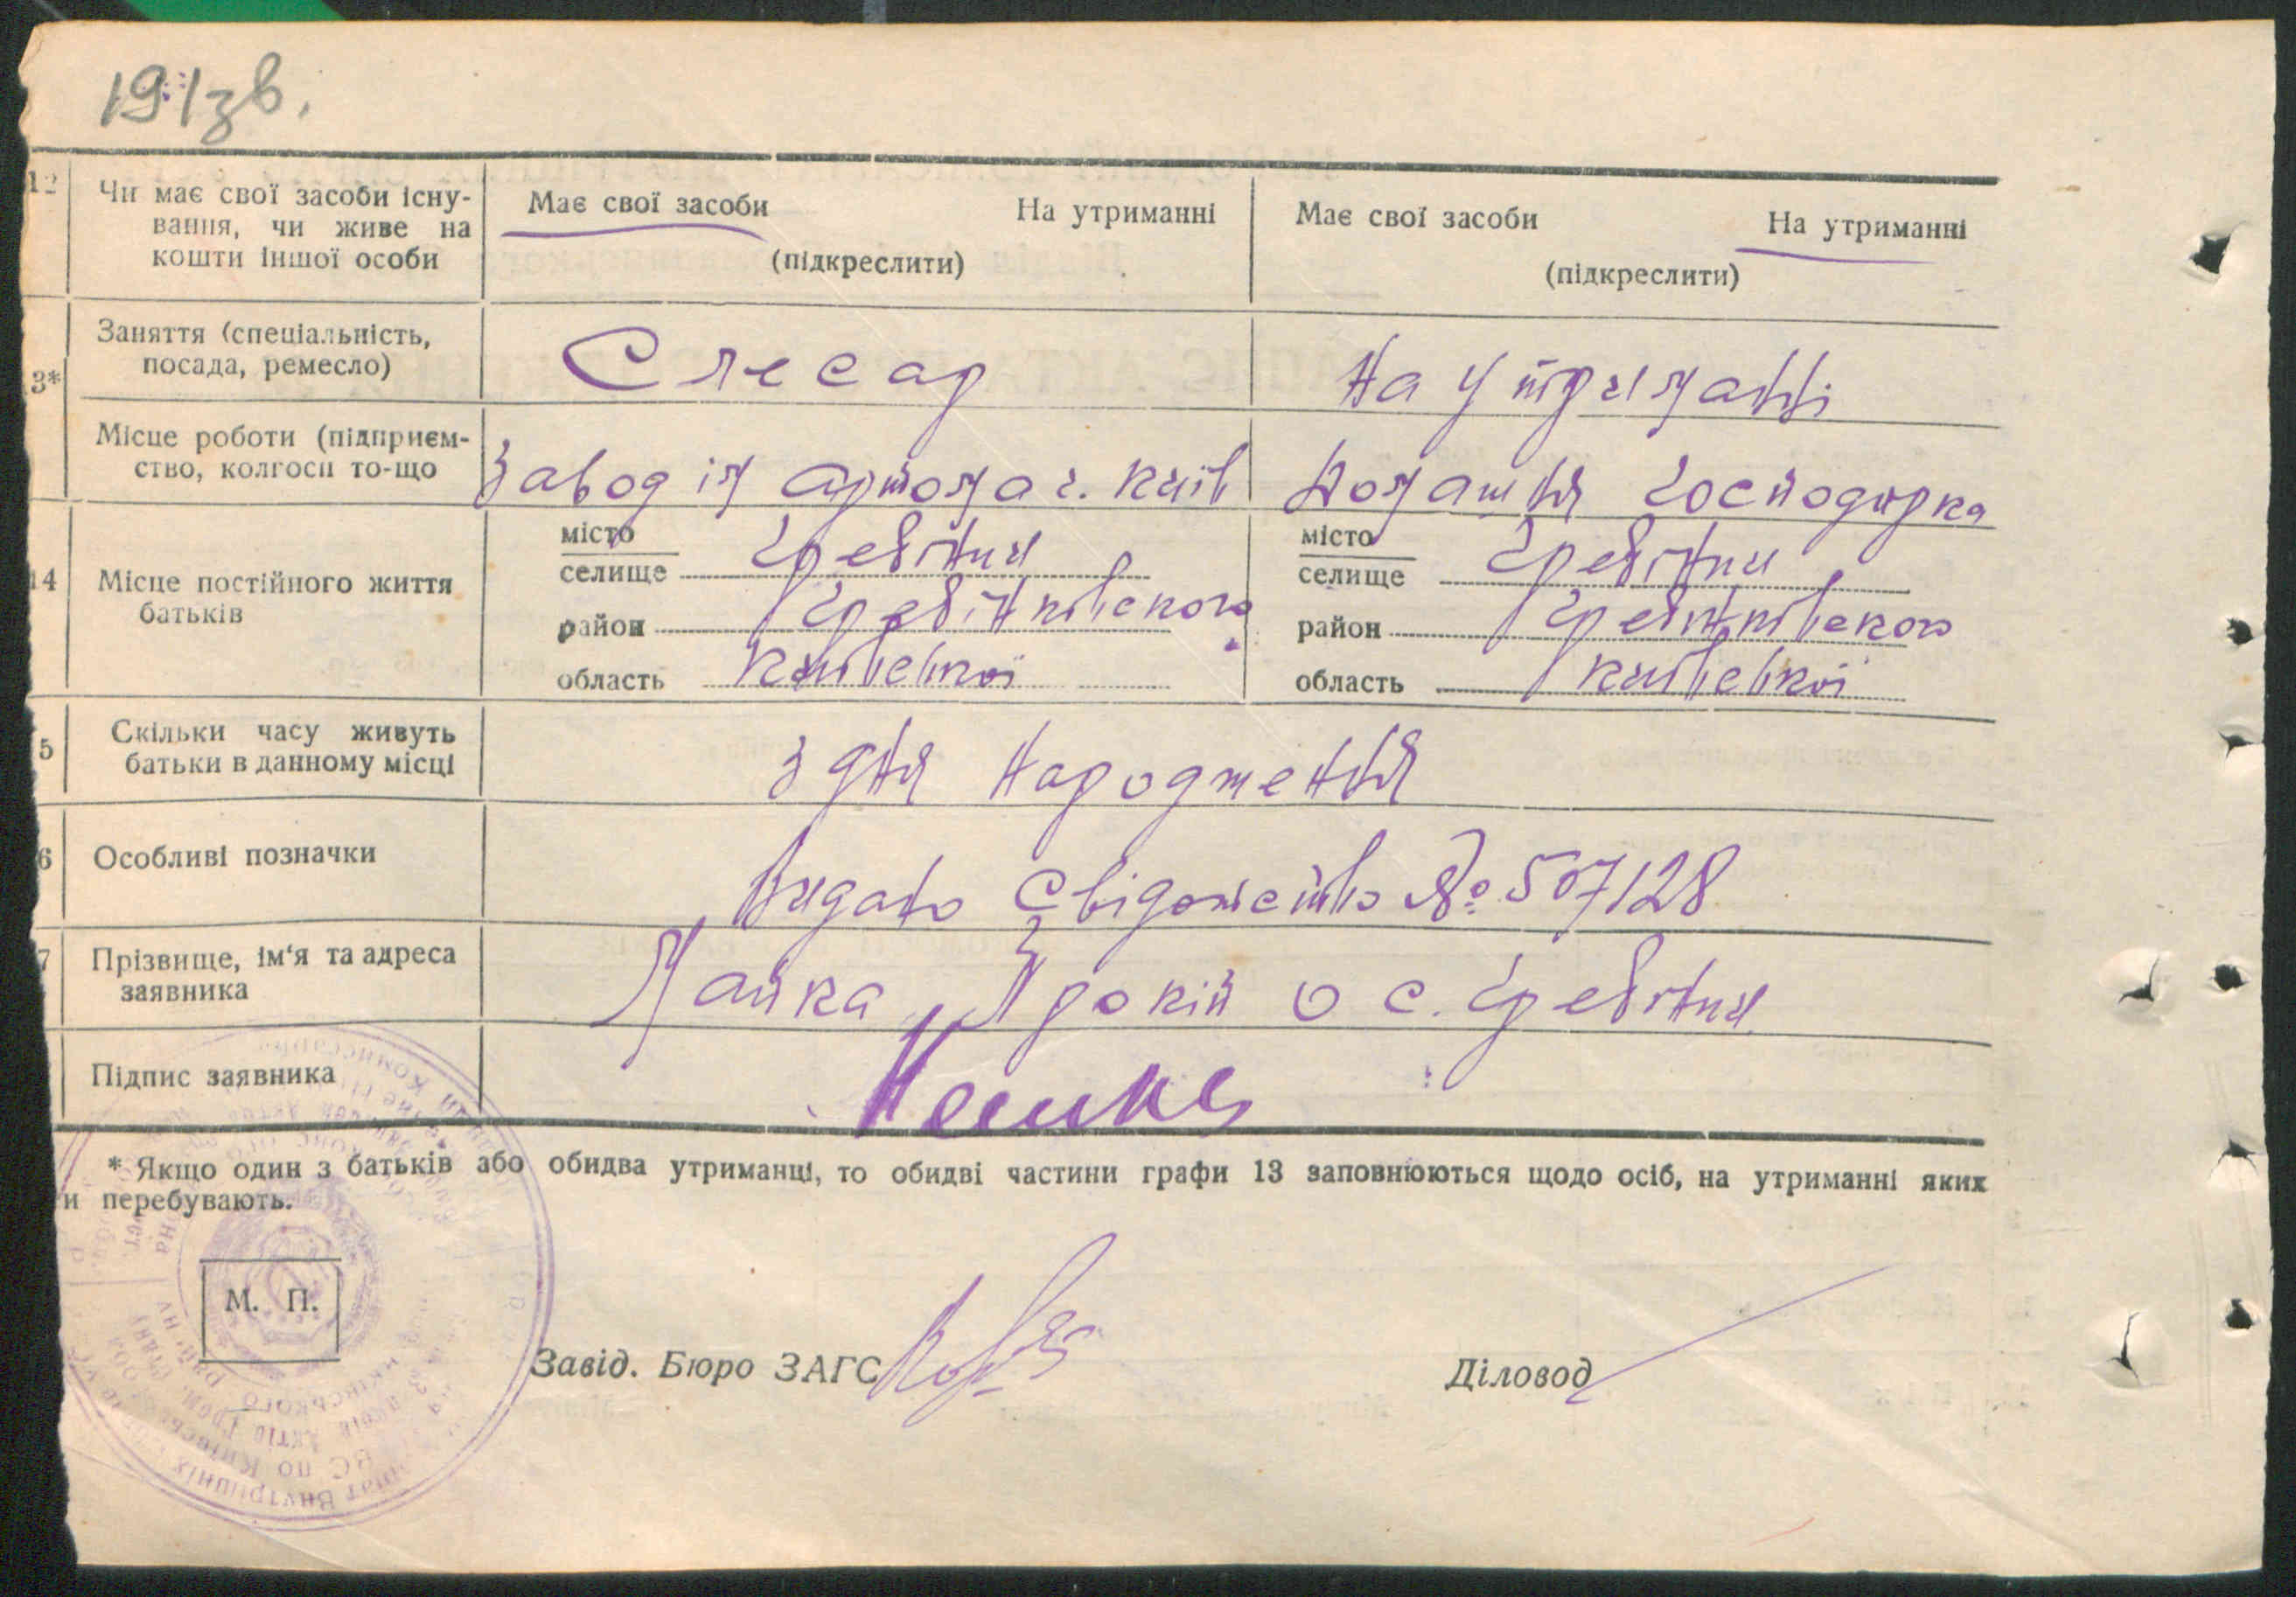 191зв.
12 Чи має свої засоби існу-
вання, чи живе на
кошти іншої особи
Має свої засоби На утриманні
(підкреслити)
Має свої засоби На утриманні
(підкреслити)
3* Заняття (спеціальність,
посада, ремесло)
Слесар
На утриманні
Місце роботи (підприєм-
ство, колгосп то-що
Завод ім Артома г. Київ
Домашня господарка
14 Місце постійного життя
батьків
місто
селище Гребінки
район Гребінківского
область Київської
місто
селище Гребінки
район Гребінківского
область Київської
5 Скільки часу живуть
батьки в данному місці
З дня народження
6 Особливі позначки
Видано Свідоцтво № 507128
7 Прізвище, ім'я та адреса
заявника
с. Гребінки
Підпис заявника
* Якщо один з батьків або обидва утриманці, то обидві частини графи 13 заповнюються щодо осіб, на утриманні яких
и перебувають.
М. П.
Завід. Бюро ЗАГС
Діловод